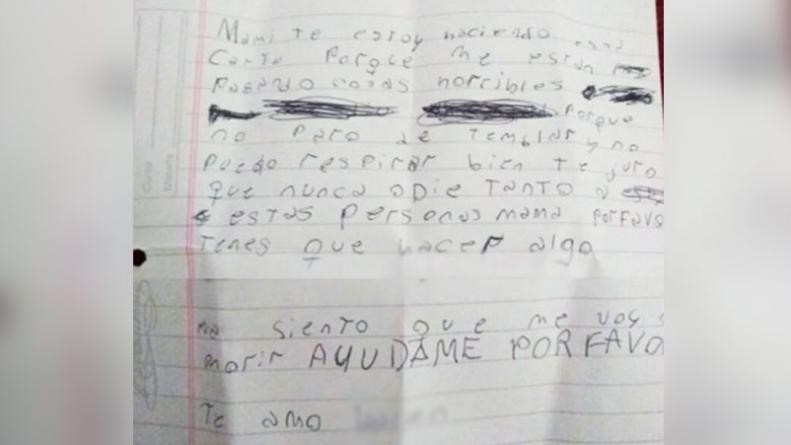 Mami te estoy haciendo esta
Carta Porque me están
Pasando cosas horribles
Porque
no Paro de Temblar y no
Puedo respirar bien Te juro
que nunca odie TANTO a
estas Personas mama PorFavo
Tenes que hacer algo
me siento que me voy
morir AYUDAME POR FAVO
Te amo